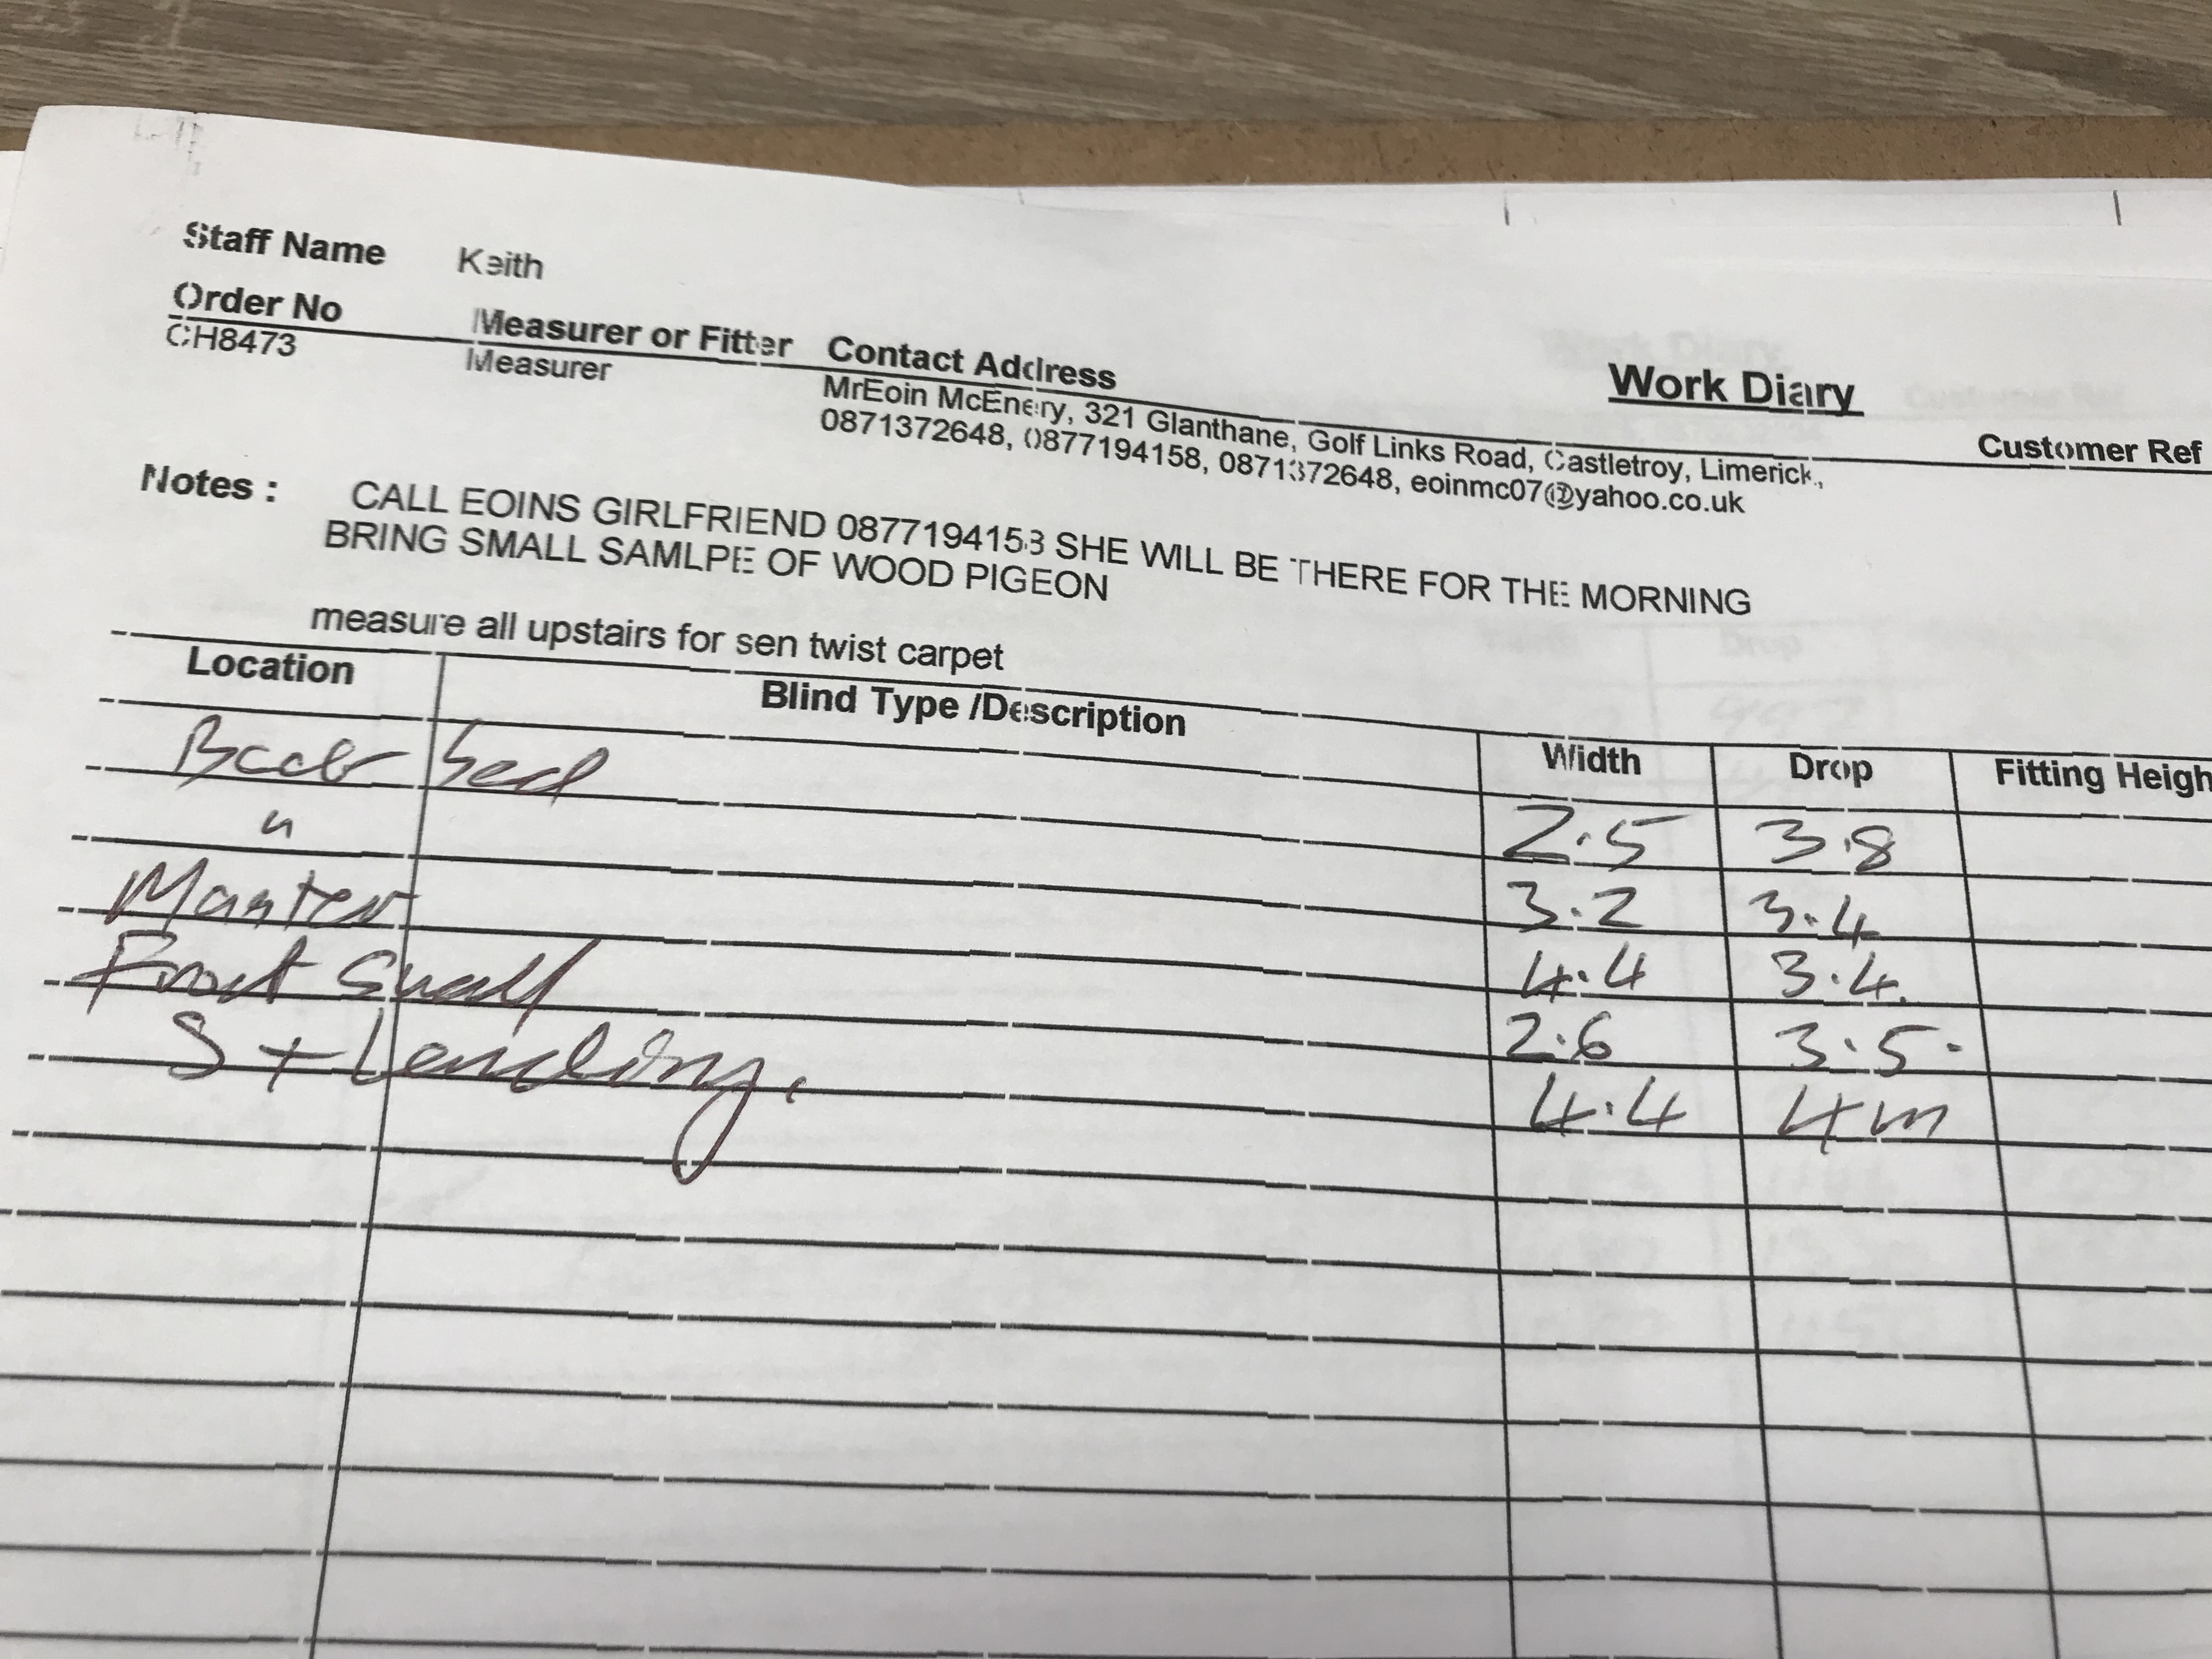 Staff Name Keith
Order No Measurer or Fitter Contact Address
Work Diary
Customer Ref
CH8473 Measurer MrEoin McEnery, 321 Glanthane, Golf Links Road, Castletroy, Limerick.,
0871372648, 0877194158, 0871372648, eoinmc07@yahoo.co.uk
Notes : CALL EOINS GIRLFRIEND 0877194158 SHE WILL BE THERE FOR THE MORNING
BRING SMALL SAMLPE OF WOOD PIGEON
measure all upstairs for sen twist carpet
Location Blind Type /Description Width Drop Fitting Heigh
Back bed 2.5 3.8
" 3.2 3.4
Master 4.4 3.4
Front Small 2.6 3.5
S + Landing. 4.4 4m